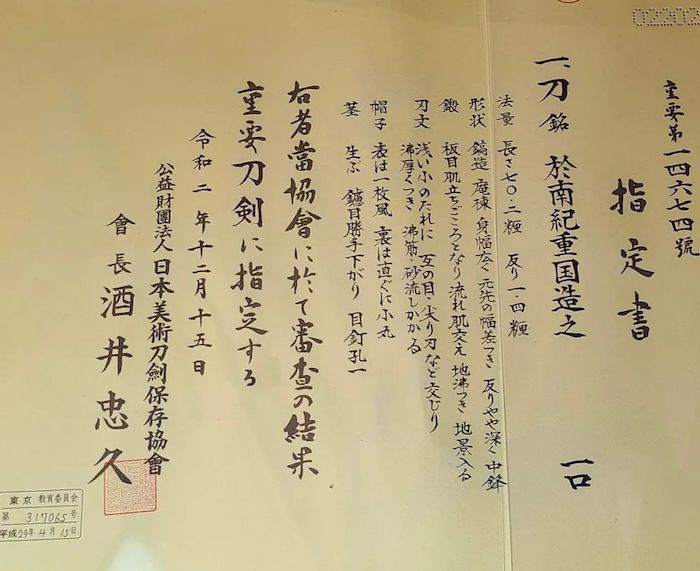 重要第一四六七四號
指定書
一、刀 銘 於南紀重国造之 一口
法量 長さ七〇・二糎 反り一・四糎
形状 鎬造 庵棟 身幅広く 元先の幅差つき 反りやや深く 中鋒
鍛 板目肌立ちごころとなり 流れ肌交え 地沸つき 地景入る
刃文 浅い小のたれに 互の目・尖り刃など交じり
沸厚くつき 沸筋・砂流しかかる
帽子 表は一枚風 裏は直ぐに小丸
茎 生ぶ 鑢目勝手下がり 目釘孔一
右者當協會に於て審査の結果
重要刀剣に指定する
令和二年十二月十五日
公益財團法人 日本美術刀劍保存協會
會長 酒井忠久
東京 教育委員会
第 317065 号
平成29年4月15日